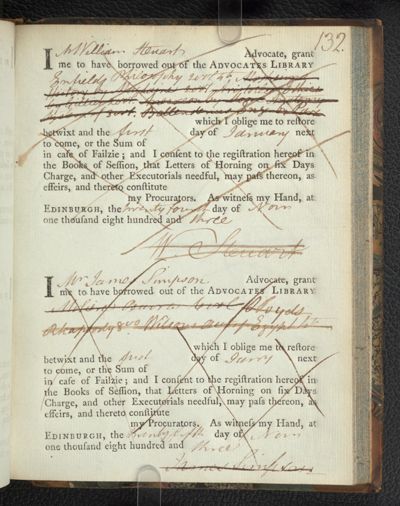 132.
I Mr William Steuart Advocate, grant
me to have borrowed out of the ADVOCATES LIBRARY
Enfields Philosophy
which I oblige me to reſtore
betwixt and the first day of January next
to come, or the Sum of
in caſe of Failzie; and I conſent to the regiſtration hereof in
the Books of Seſſion, that Letters of Horning on ſix Days
Charge, and other Executorials needful, may paſs thereon, as
effeirs, and thereto conſtitute
my Procurators. As witneſs my Hand, at
EDINBURGH, the twenty fourth day of Novr
one thouſand eight hundred and three
W. Steuart
I Mr James Simpson Advocate, grant
me to have borrowed out of the ADVOCATES LIBRARY
Rhapsody 8vo Wilsons Egypt
which I oblige me to reſtore
betwixt and the first day of Janry next
to come, or the Sum of
in caſe of Failzie; and I conſent to the regiſtration hereof in
the Books of Seſſion, that Letters of Horning on ſix Days
Charge, and other Executorials needful, may paſs thereon, as
effeirs, and thereto conſtitute
my Procurators. As witneſs my Hand, at
EDINBURGH, the twenty fifth day of Novr
one thouſand eight hundred and three
James Simpson